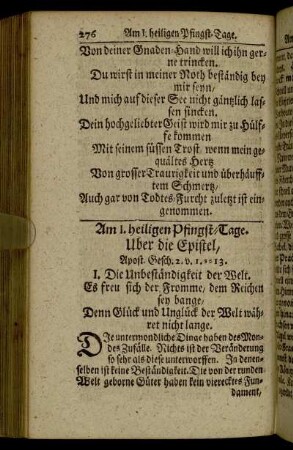 276 Am 1. heiligen Pfingst-Tage.
Von deiner Gnaden-Hand will ich ihn ger-
ne trincken.
Du wirst in meiner Noth beständig bey
mir seyn,
Und mich auf dieser See nicht gäntzlich las-
sen sincken.
Dein hochgeliebter Geist wird mir zu Hülf-
fe kommen
Mit seinem süssen Trost, wenn mein ge-
quältes Hertz
Von grosser Traurigkeit und überhäuff-
tem Schmertz,
Auch gar von Todtes-Furcht zuletzt ist ein-
genommen.
Am 1. heiligen Pfingst-Tage.
Uber die Epistel,
Apost. Gesch. 2. v. 1. ‒ 13.
I. Die Unbeständigkeit der Welt.
Es freu sich der Fromme, dem Reichen
sey bange,
Denn Glück und Unglück der Welt wäh-
ret nicht lange.
DJe untermondliche Dinge haben des Mon-
des Zufälle. Nichts ist der Veränderung
so sehr als diese unterworffen. In denen-
selben ist keine Beständigkeit. Die von der runden
Welt geborne Güter haben kein vierecktes Fun-
dament,